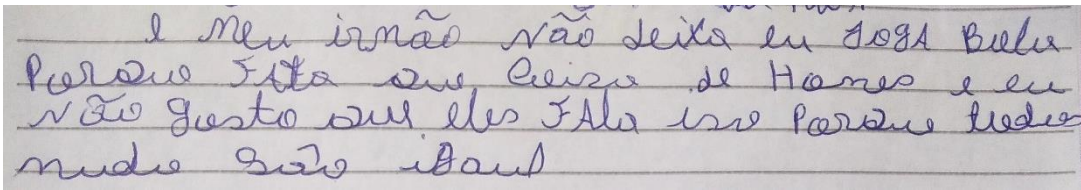 e meu irmão não deixa eu JogA Bola
Porque FAla que Coiza de Homes e eu
não gosto que eles FAla iso Porque todos
mudo são igaul